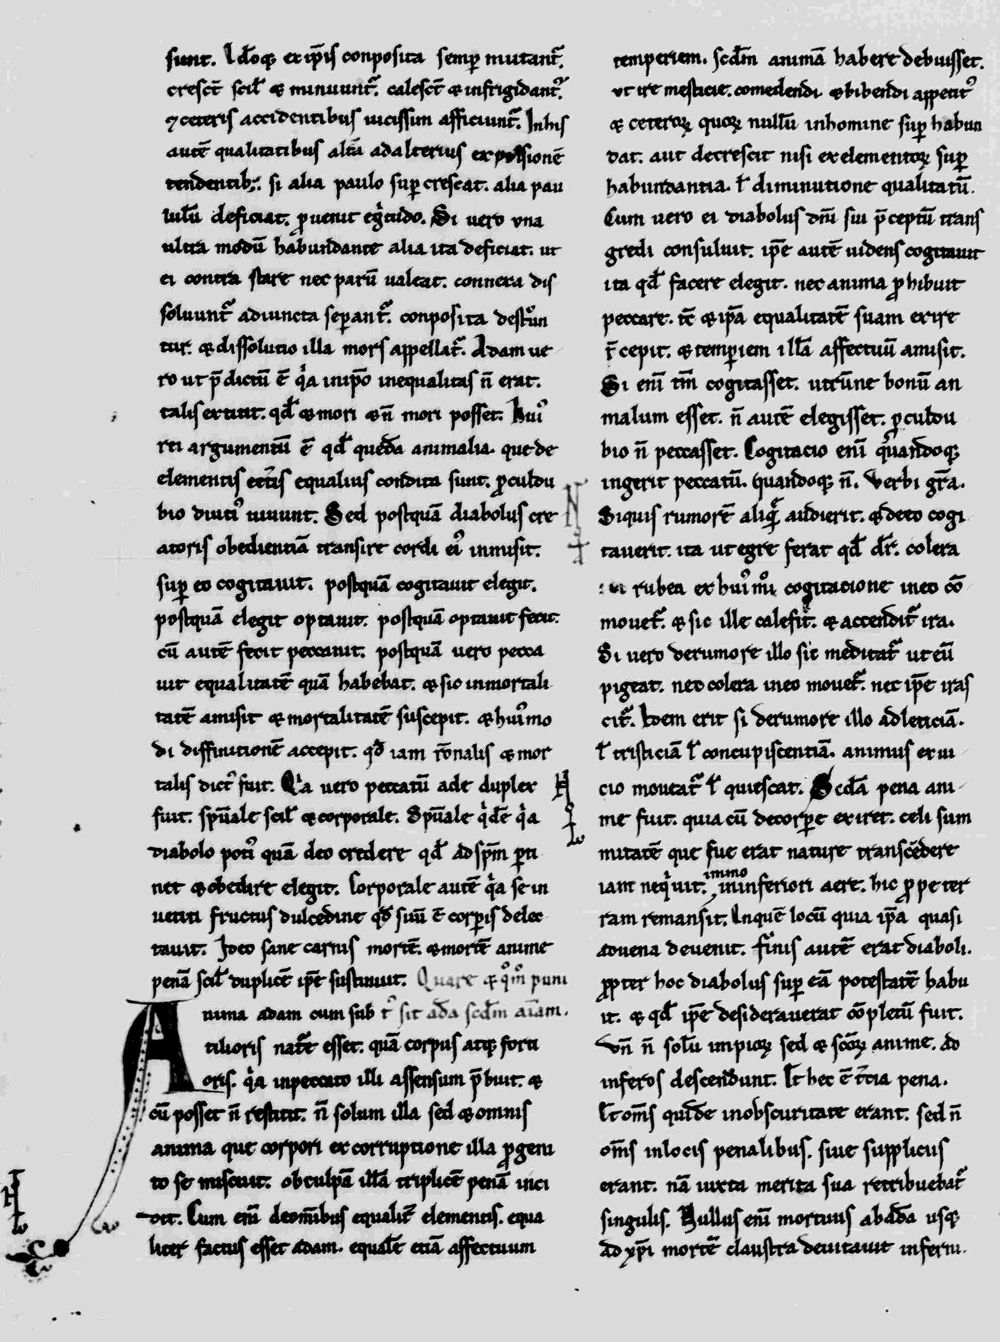 sunt. Idoq; ex ip̄is conposita semp̲ mutant᷑.
cresc̄t scil̄ & minuunt᷑. calesc̄t & infrigidant᷑.
⁊ ceteris accidentibus uicissim afficiunt᷑. In his
autē qualitatibus altā ad alterius expulsionē
tendentib;. si alia paulo sup̲ crescat. alia pau
lulū deficiat. ꝓuenit eg̊tudo. Si uero una
ultra modū habundante alia ita deficiat. ut
ei contra stare nec parū ualeat. connexa dis
soluunt᷑ adiuncta sep̲ant᷑. conposita destruun
tur. & dissolutio illa mors appellat᷑. Adam ue
ro ut p̄dictū ē q̇a in ip̄o inequalitas n̄ erat.
talis extitit. qđ & mori & n̄ mori posset. Huiꝰ
rei argumentū ē qđ quedā animalia. que de
elementis cet̄is equalius condita sunt. ꝓculdu
bio diutiꝰ uiuunt. Sed postquā diabolus cre
atoris obedientiā transire cordi eiꝰ inmisit.
sup̲ eo cogitauit. postquā cogitauit elegit.
postquā elegit optauit. postquā optauit fecit.
cū autē fecit peccauit. postquā uero pecca
uit equalitatē quā habebat. & sic inmortali
tatē amisit & mortalitatē suscepit. & huiꝰmo
di diffinitionē accepit. qđ iam r̄onalis & mor
talis dictꝰ fuit. Q̇a uero peccatū ade duplex
fuit. spūale scil̄ & corporale. Spūale q̇dē q̇a
diabolo potiꝰ quā deo credere qđ ad sp̄m p̲ti
net & obedire elegit. Corporale autē q̇a se in
uetiti fructus dulcedine qđ suū ē corp̲is delec
tauit. Ideo sane carnis mortē. & mortē anime
penā scil̄ duplicē ip̄e sustinuit. Quare & q̊m̊ puni
Anima adam cum sub tꝰ sit adā scd̄m aīam.
tilioris nat᷑e esset. quā corpus atq; forti
oris. q̇a in peccato illi assensum p̄buit. &
cū posset n̄ restitit. n̄ solum illa sed & omnis
anima que corpori ex corruptione illa ꝓgeni
to se miscuit. ob culpā illā triplicē penā inci
dit. Cum enī de om̄ibus equalit᷑ elementis. equa
liter factus esset adam. equalē etiā affectuum
temperiem. scd̄m animā habere debuisset.
ut ire mesticie. comedendi & bibendi appetitꝰ
& ceterorꝫ quorꝫ nullū in homine sup̲ habun
dat. aut decrescit nisi ex elementorꝫ sup̲
habundantia. ł diminutione qualitatū.
Cum uero ei diabolus dn̄i sui p̄ceptū trans
gredi consuluit. ip̄e autē uidens cogitauit
ita qđ facere elegit. nec anima ꝓhibuit
peccare. tc̄ & ip̄a equalitatē suam exire
cepit. & temperiem illā affectuū amisit.
Si enī tm̄ cogitasset. utrūne bonū an
malum esset. n̄ autē elegisset. ꝓculdu
bio n̄ peccasset. Cogitacio enī qᷓndoq;
ingerit peccatū. quandoq; n̄. Verbi gr̄a.
Siquis rumorē aliq̄ audierit. & de eo cogi
tauerit. ita ut egre ferat qđ dr̄. colera
rubea ex huiꝰm̊i cogitacione in eo cō
mouet᷑. & sic ille calefit. & accendit᷑ ira.
Si uero de rumore illo sic meditat᷑ ut eū
pigeat. nec colera in eo mouet᷑. nec ip̄e iras
cit᷑. Idem erit si de rumore illo ad leticiā.
ł tristiciā ł concupiscentiā. animus ex ui
cio moueat᷑ ł quiescat. Scd̄a pena ani
me fuit. quia cū de corp̲e exiret. celi sum
mitatē que sue erat nature transcēdere
iam neq̇uit. immo in inferiori aere. hic ꝓpe ter
ram remansit. In quē locū quia ip̄a quasi
aduena deuenit. finis autē erat diaboli.
ꝓpter hoc diabolus sup̲ eā potestatē habu
it. & qđ ip̄e desiderauerat cōpletū fuit.
Vn̄ n̄ solū impiorꝫ sed & sc̄orꝫ anime. ad
inferos descendunt. Et hec ē t̄cia pena.
Et om̄s quidē in obscuritate erant. sed n̄
om̄s in locis penalibus. siue suppliciis
erant. nā iuxta merita sua retribuebat᷑
singulis. Nullus enī mortuus ab adā usq;
ad xp̄i mortē claustra deuitauit inferni.